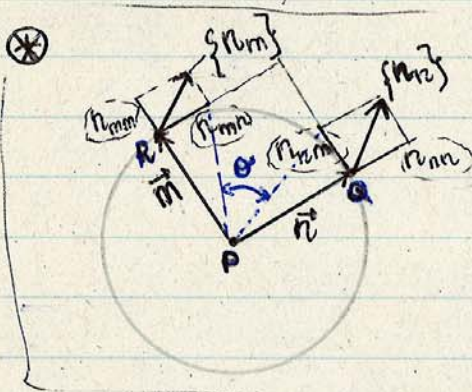 *
{n_m}
{n_n}
n_mm
n_mn
n_nm
n_nn
R
θ
Q
m⃗
n⃗
P